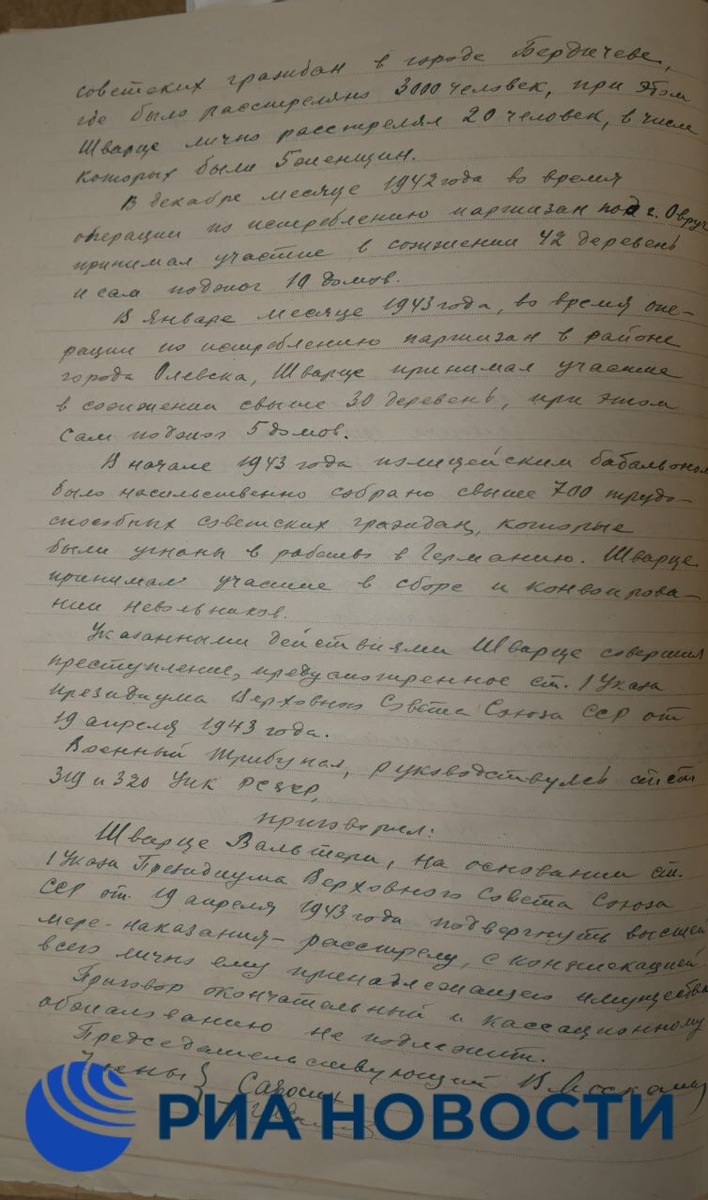 советских граждан в городе Бердичеве,
где было расстреляно 3000 человек, при этом
Шварце лично расстрелял 20 человек, в числе
которых были 5 женщин.
В декабре месяце 1942 года во время
операции по истреблению партизан под г. Овруч
принимал участие в сожжении 42 деревень
и сам поджог 10 домов.
В январе месяце 1943 года, во время опе-
рации по истреблению партизан в районе
города Олевска, Шварце принимал участие
в сожжении свыше 30 деревень, при этом
сам поджог 5 домов.
В начале 1943 года полицейским батальоном
было насильственно собрано свыше 700 трудо-
способных советских граждан, которые
были угнаны в рабство в Германию. Шварце
принимал участие в сборе и конвоирова-
нии невольников.
Указанными действиями Шварце совершил
преступление, предусмотренное ст. 1 Указа
Президиума Верховного Совета Союза ССР от
19 апреля 1943 года.
Военный Трибунал, руководствуясь ст.ст.
319 и 320 УПК РСФСР,
приговорил:
Шварце Вальтера, на основании ст.
1 Указа Президиума Верховного Совета Союза
ССР от 19 апреля 1943 года подвергнуть высшей
мере наказания – расстрелу, с конфискацией
всего лично ему принадлежащего имущества
Приговор окончательный и кассационному
обжалованию не подлежит.
Председательствующий
Члены
РИА НОВОСТИ